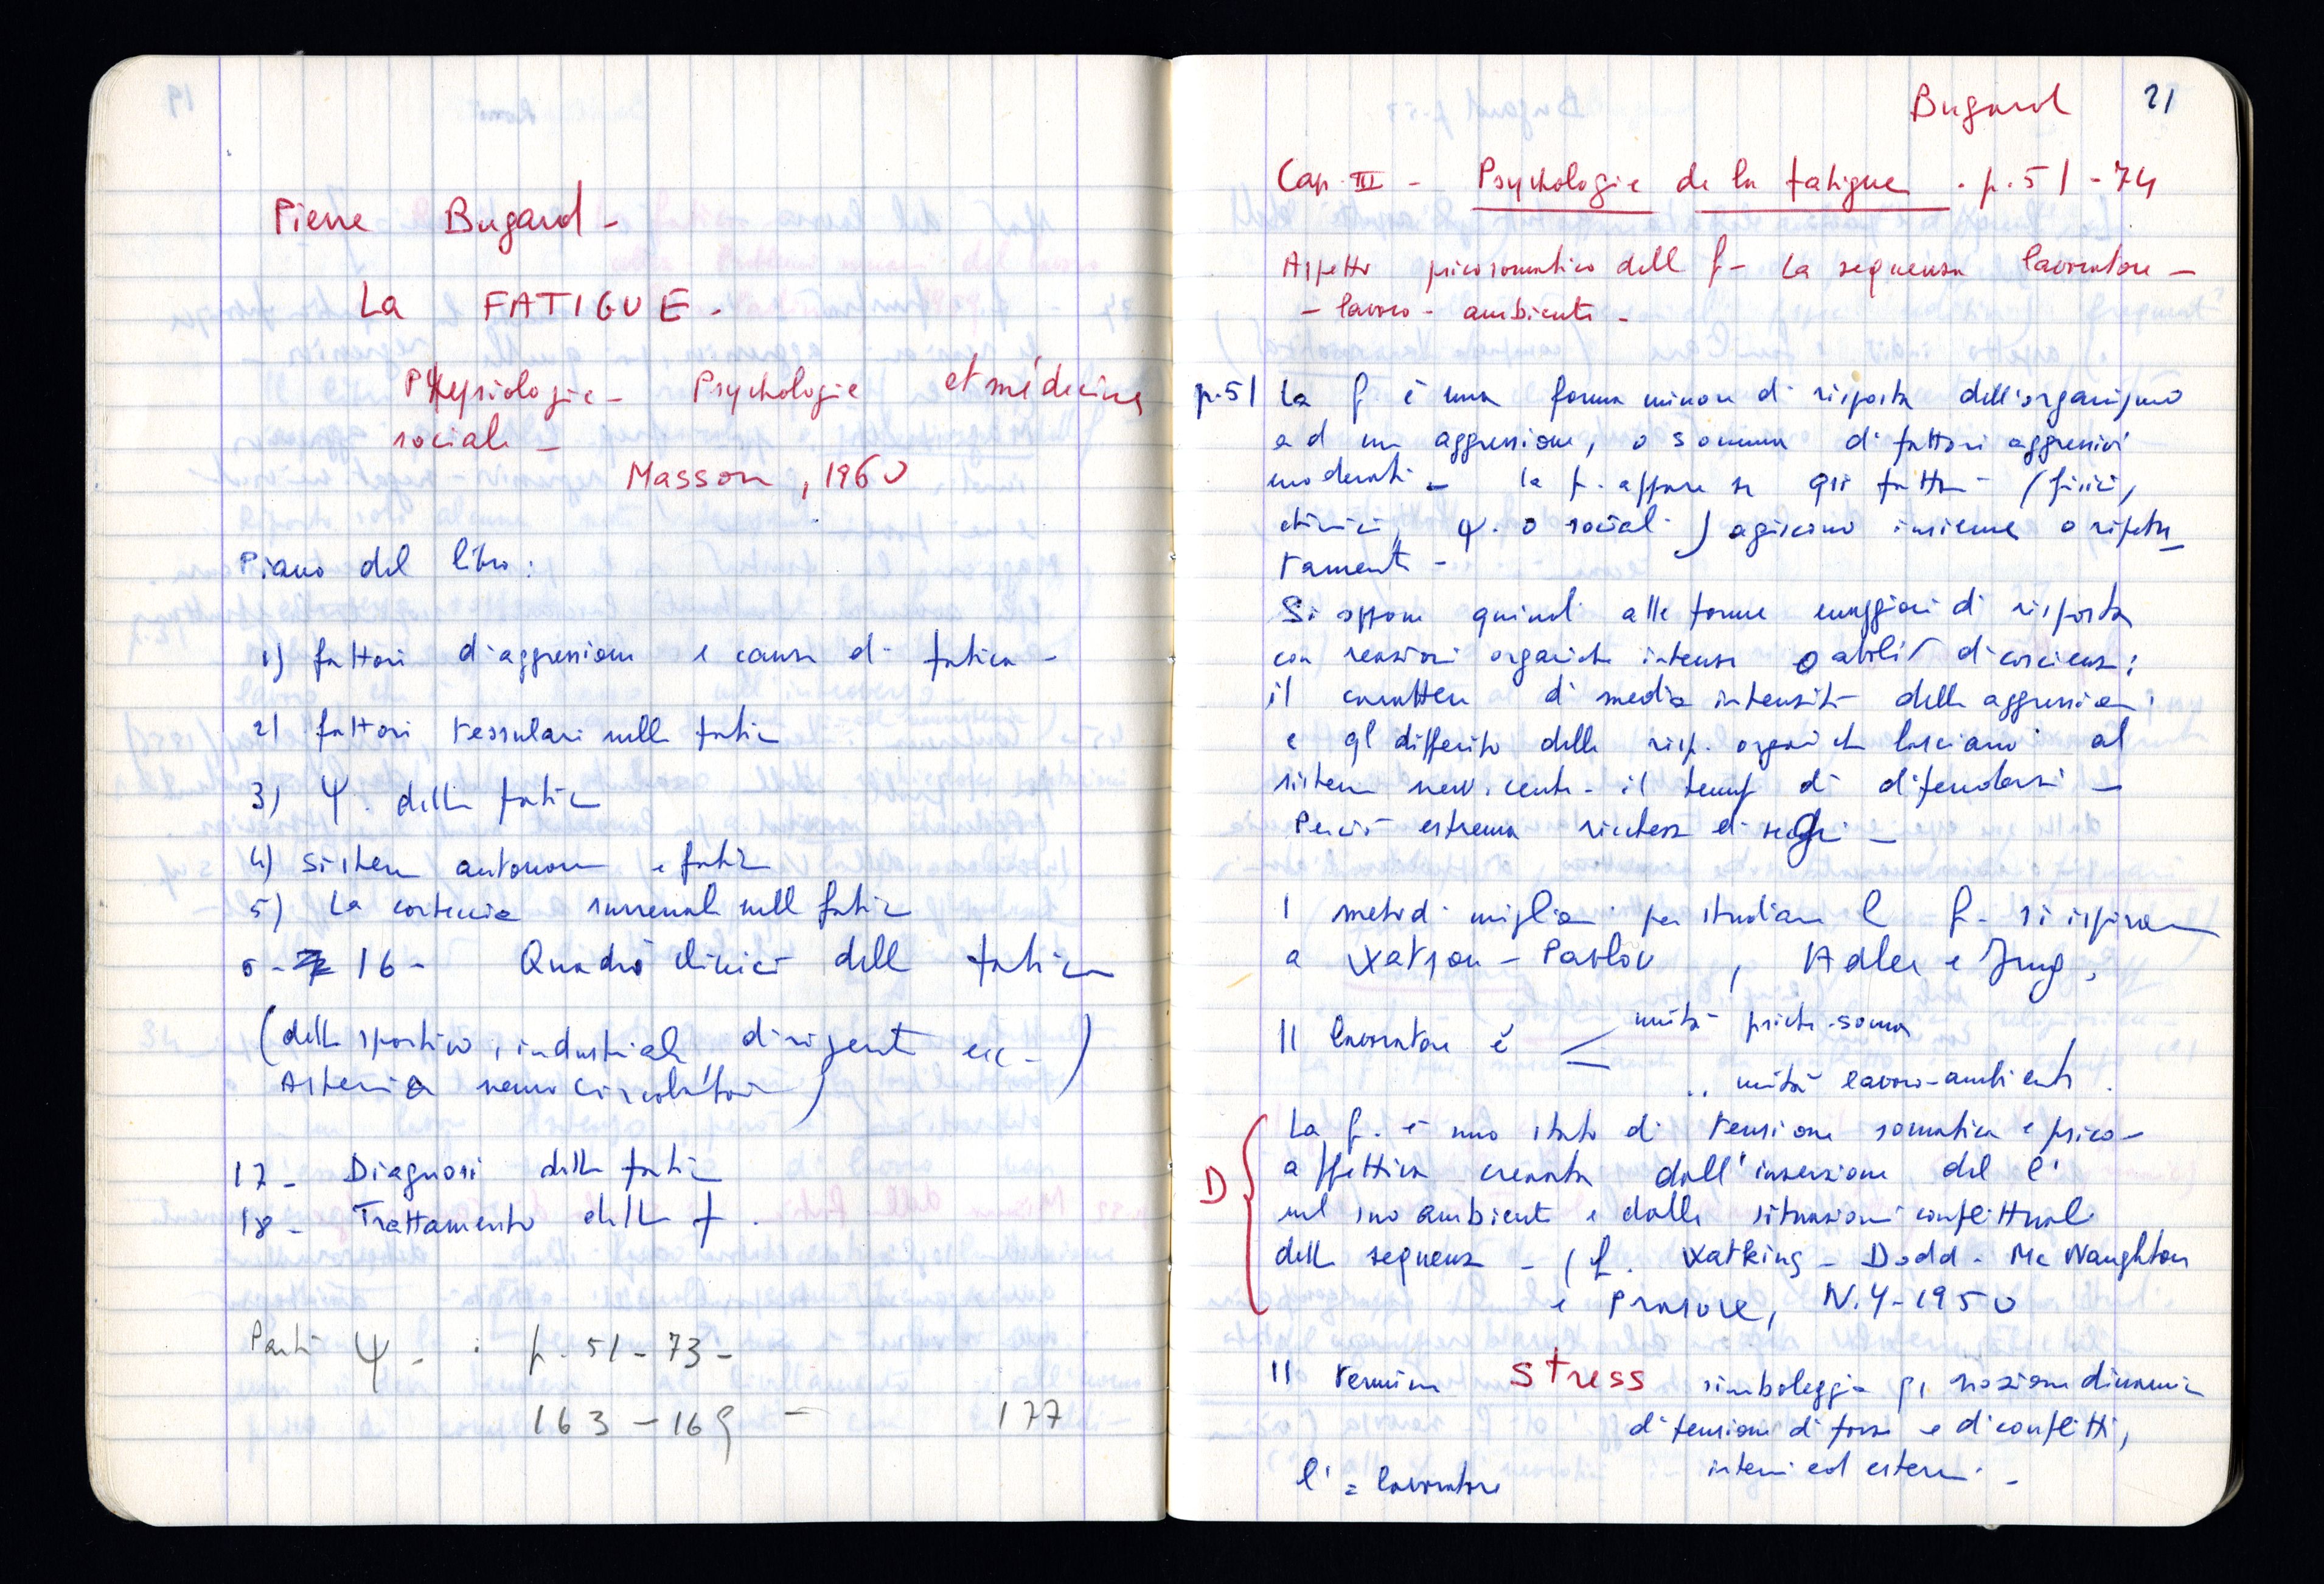 Pierre Bugard -
La FATIGUE.
Physiologie - Psychologie et médecine
sociale -
Masson, 1960
Piano del libro:
1) fattori d'aggressione e cause di fatica -
2) fattori tessulari nella fatica
3) Ψ. della fatica
4) Sistema autonomo e fatica
5) La corteccia surrenale nella fatica
6 - 16 - Quadri clinici della fatica
(dello sportivo, industriale, dirigenti ecc -)
Astenia neurocircolatoria)
17 - Diagnosi della fatica
18 - Trattamento della f.
Parti Ψ - : p. 51 - 73 -
163 - 169 - 177
Bugard 21
Cap. III - Psychologie de la fatigue . p. 51 - 74
Aspetto psicosomatico della f - La sequenza lavoratore -
- lavoro - ambiente -
p.51 La f. è una forma minore di risposta dell'organismo
ad una aggressione, o somma di fattori aggressivi
moderati - la f. appare se gli fattori (fisici,
chimici, ψ. o sociali) agiscono insieme o ripetu_
tamente -
Si oppone quindi alle forme maggiori di risposta
con reazioni organiche intense o aboliz di coscienza;
il carattere di media intensità delle aggressioni
e gl differito delle risp. organiche lasciano al
sistema nerv. centr. il tempo di difendersi -
Perciò estrema ricchezza di segni -
I metodi migliori per studiare la f - si ispirano
a Watson - Pavlov, Adler e Jung,
Il lavoratore è < unità psiche-soma
" unità lavoro-ambiente.
D { La f. è uno stato di tensione somatica e psico-
affettiva creata dall'inserzione del l'
nel suo ambiente e dalle situazioni conflittuali
della sequenza - (f. Watkins - Dodd - Mc Naughton
e Prasore, N.Y - 1950
Il termine stress simboleggia qs nozione dinamica
di tensioni di forze e di conflitti,
interni ed esterni -
l' = lavoratore